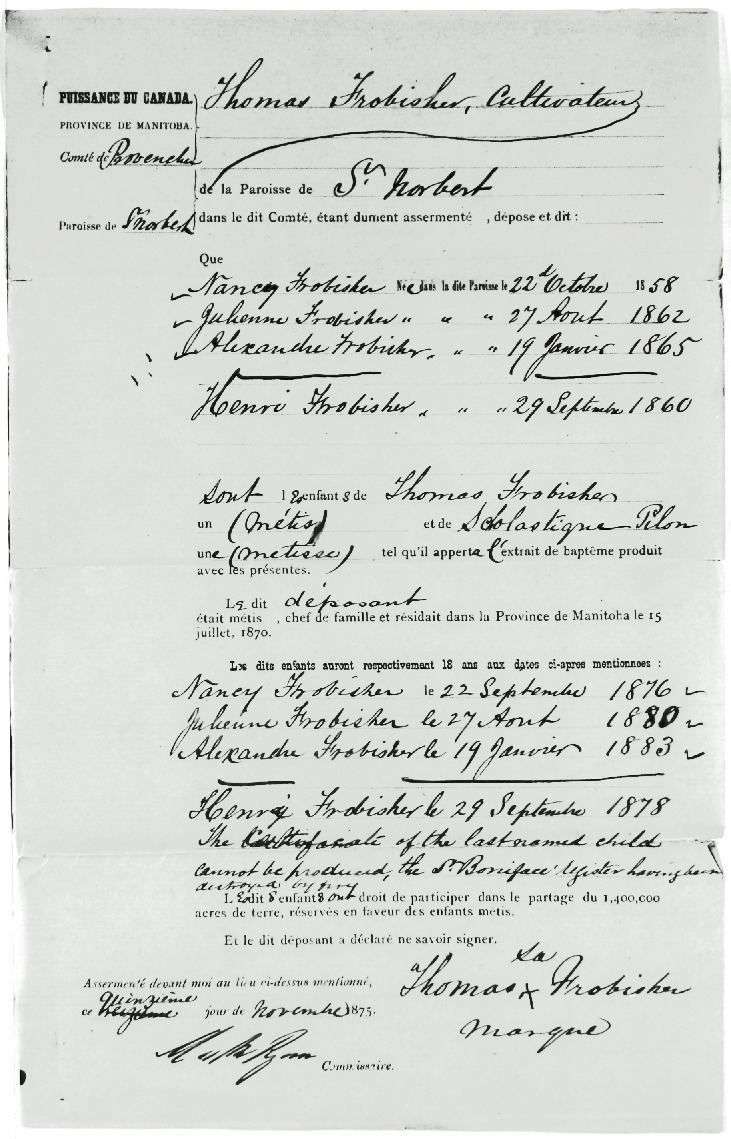 PUISSANCE DU CANADA.
PROVINCE DE MANITOBA.
Comté de Provencher
Paroisse de St Norbert
Thomas Frobisher, Cultivateur
de la Paroisse de St Norbert
dans le dit Comté, étant dument assermenté , dépose et dit :
Que
Nancy Frobisher Née dans la dite Paroisse le 22d Octobre 1858
Julienne Frobisher " " " 27 Aout 1862
Alexandre Frobisher " " " 19 Janvier 1865
Henri Frobisher " " " 29 Septembre 1860
sont les enfants de Thomas Frobisher
un (métis) et de Scholastique Pilon
une (metisse) tel qu'il apperta l'extrait de baptême produit
avec les présentes.
Le dit déposant
était métis , chef de famille et résidait dans la Province de Manitoba le 15
juillet, 1870.
Les dits enfants auront respectivement 18 ans aux dates ci-apres mentionnees :
Nancy Frobisher le 22 Septembre 1876
Julienne Frobisher le 27 Aout 1880
Alexandre Frobisher le 19 Janvier 1883
Henry Frobisher le 29 Septembre 1878
The Certificate of the last named child
cannot be produced, the St Boniface register having been
destroyed by fire
Lesdits enfants ont droit de participer dans le partage du 1,400,000
acres de terre, réservés en faveur des enfants métis.
Et le dit déposant a déclaré ne savoir signer.
Assermenté devant moi au lieu ci-dessus mentionné,
quinzième
ce treizième jour de Novembre 1875.
sa
Thomas x Frobisher
marque
Commissaire.